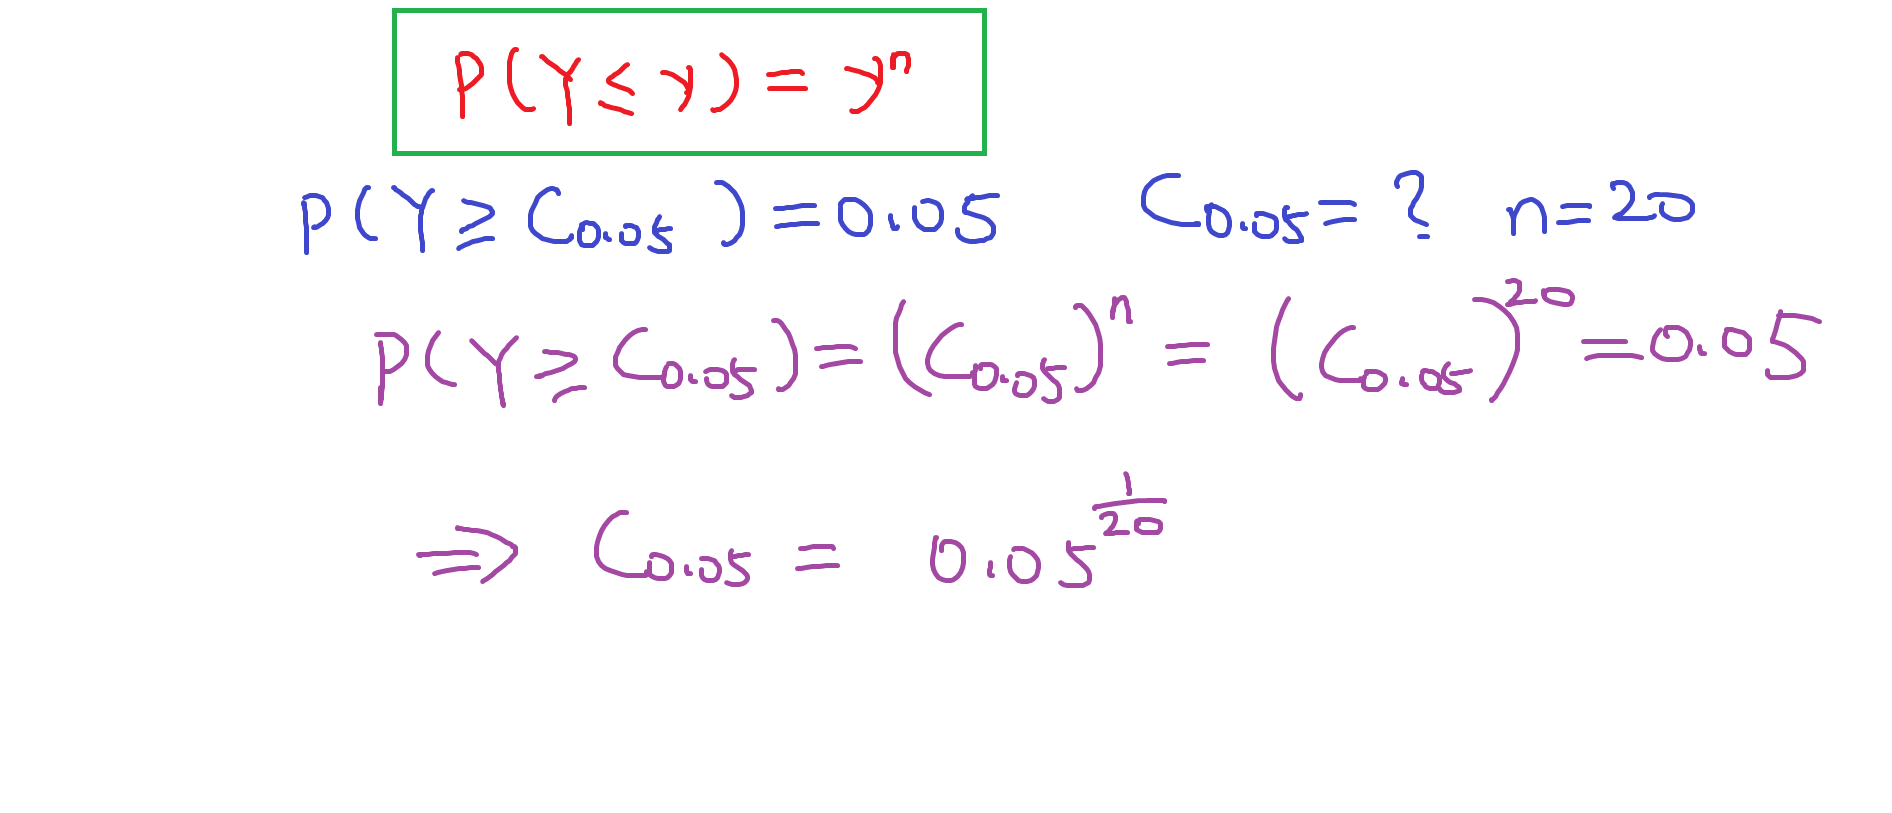 P(Y ≤ y) = yⁿ
P(Y ≥ C₀.₀₅) = 0.05 C₀.₀₅ = ? n = 20
P(Y ≥ C₀.₀₅) = (C₀.₀₅)ⁿ = (C₀.₀₅)²⁰ = 0.05
⇒ C₀.₀₅ = 0.05^(1/20)